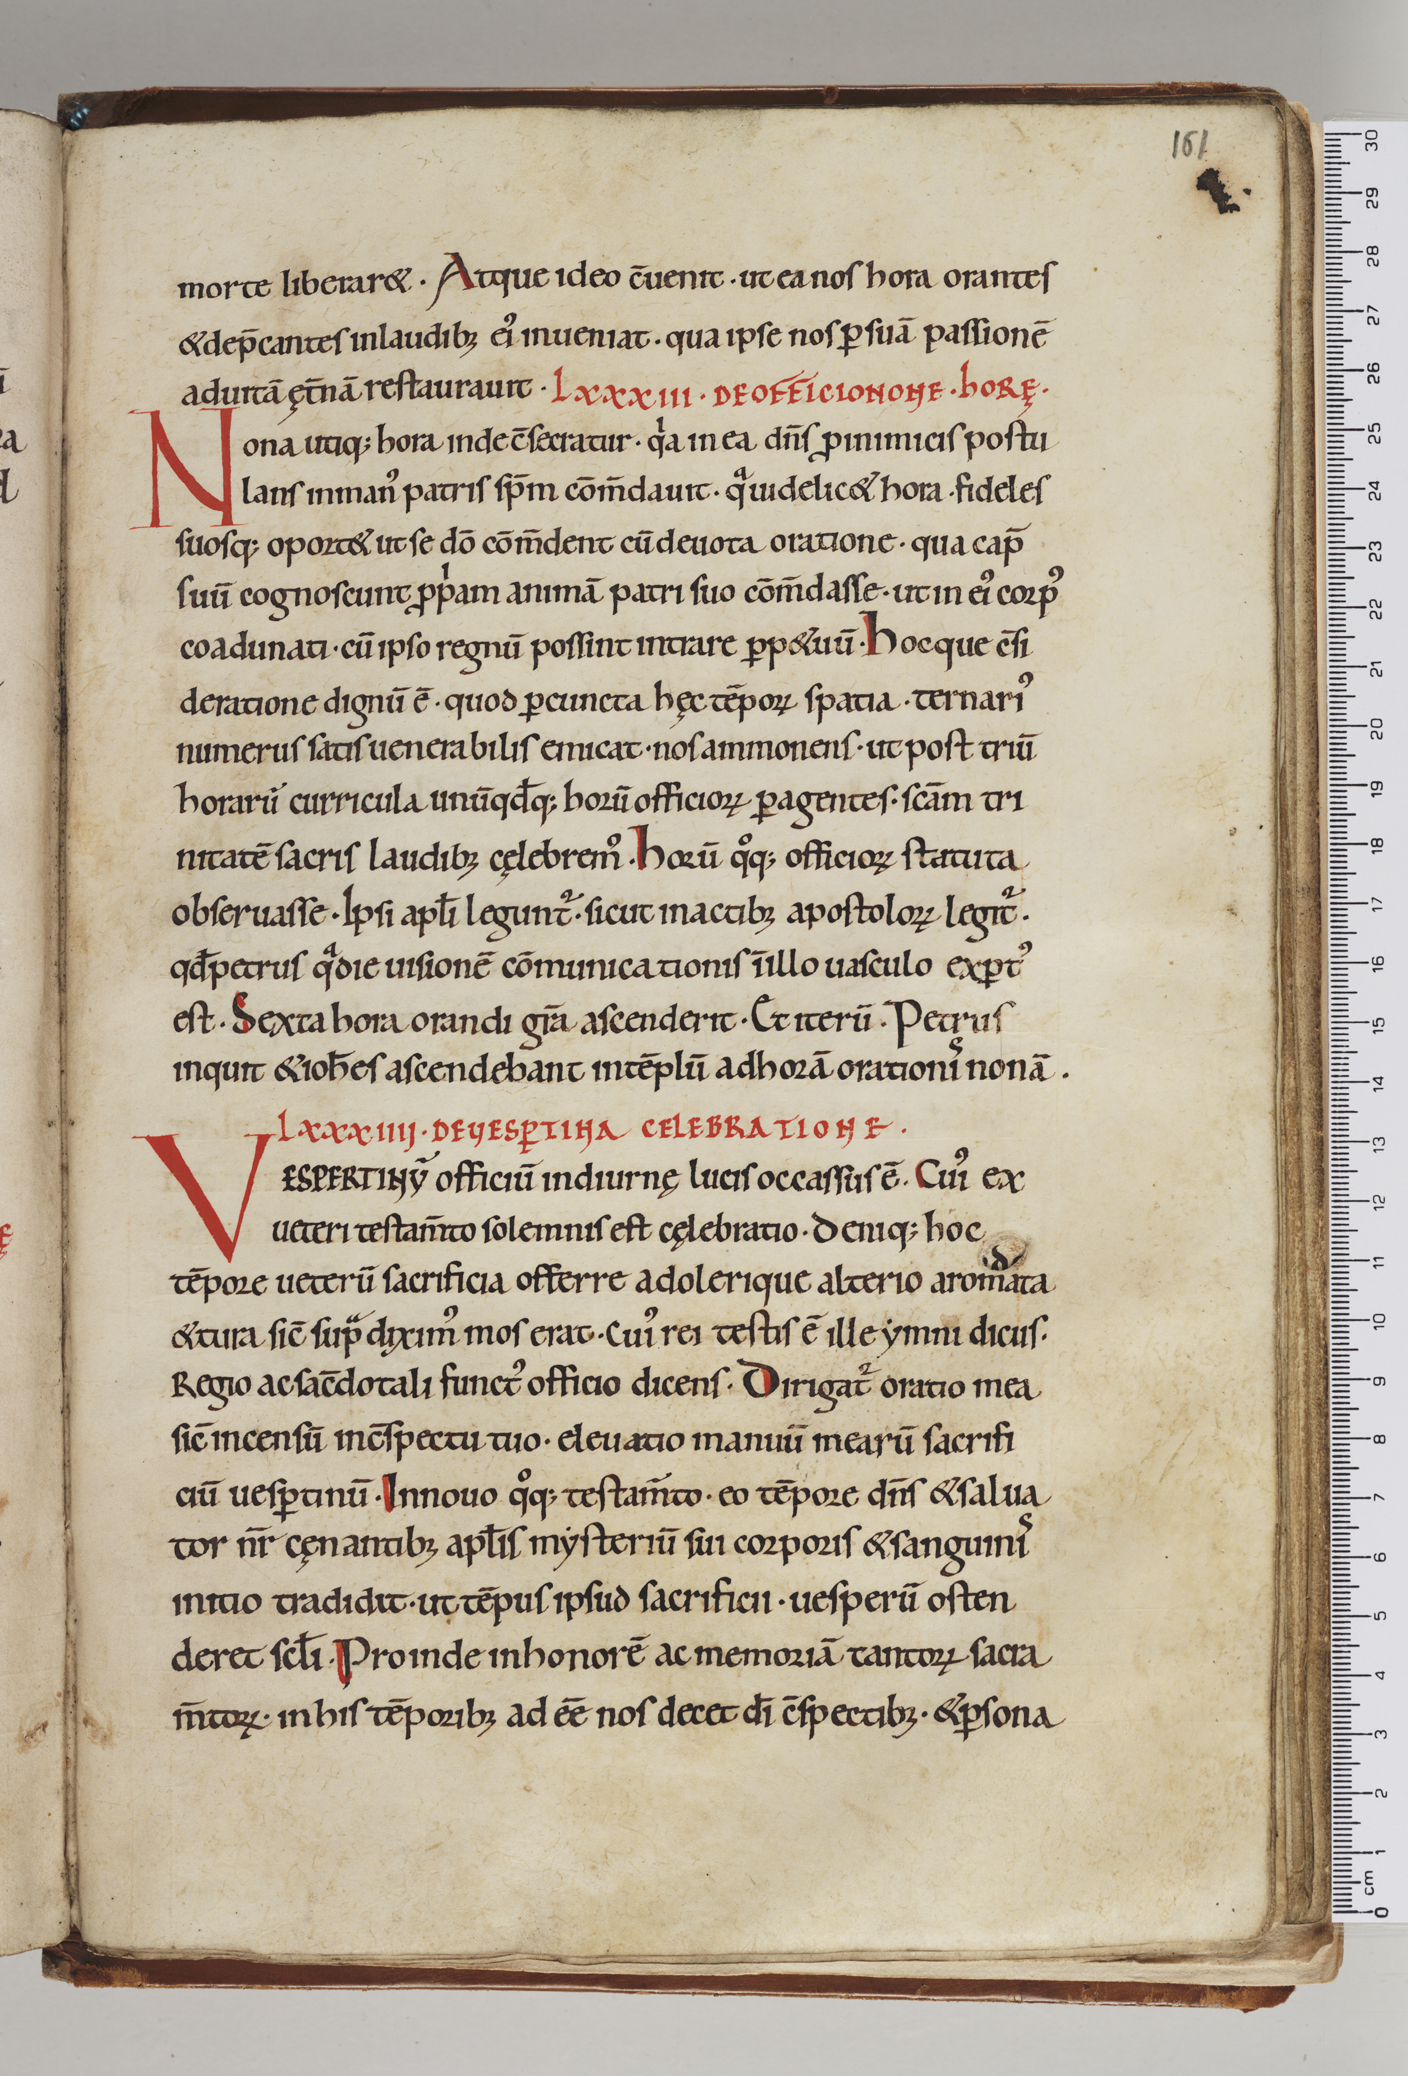 161
morte liberar&. Atque ideo c̄uenit · ut ea nos hora orantes
& dep̄cantes in laudibꝫ eiꝰ inueniat · qua ipse nos ꝑ suā passionē
ad uitā ęt̄nā restaurauit · LXXXIII · DE OFFICIO NONE · HORĘ ·
Nona utiqꝫ hora inde c̄secratur · qͥa in ea dn̄s ꝓ inimicis postu
lans in manꝰ patris sp̄m cōm̄dauit · qͣ uidelic& hora · fideles
suosqꝫ oport& ut se dō cōm̄dent cū deuota oratione · qua cap̄
suū cognoscunt ꝓpͥam animā patri suo cōm̄dasse · ut in eiꝰ corpꝰ
coadunati · cū ipso regnū possint intrare ꝑp&uū · Hocque c̄si
deratione dignū ē · quod ꝑ cuncta hęc tēpoꝝ spatia · ternariꝰ
numerus satis uenerabilis emicat · nos ammonens · ut post triū
horarū curricula unūqđqꝫ horū officioꝝ ꝑagentes · scām tri
nitatē sacris laudibꝫ cęlebremꝰ · Horū qͦqꝫ officioꝝ statuta
obseruasse · Ipsi apłi legunt᷑ · sicut in actibꝫ apostoloꝝ legit᷑ ·
qđ petrus qͣ die uisionē cōmunicationis ī illo uasculo exꝑtꝰ
est · Sexta hora orandi grā ascenderit · Et iterū · Petrus
inquit & ioħes ascendebant in tēplū ad horā orationis nonā ·
LXXXIIII · DE VESꝑTINA CELEBRATIONE ·
VESPERTINV̄ officiū in diurnę lucis occassus ē · Cuiꝰ ex
ueteri testam̄to solemnis est cęlebratio · Deniqꝫ hoc
d
tēpore ueterū sacrificia offerre adolerique alterio aromata
& tura sic̄ supͣ diximꝰ mos erat · Cuiꝰ rei testis ē ille ymni dicus ·
Regio ac sac̄dotali functꝰ officio dicens · Dirigat᷑ oratio mea
sic̄ incensū in c̄spectu tuo · eleuatio manuū mearū sacrifi
ciū uesꝑtinū · In nouo qͦqꝫ testam̄to · eo tēpore dn̄s & salua
tor nr̄ cęnantibꝫ apłis mẏsteriū sui corporis & sanguinis
initio tradidit · ut tēpus ipsud sacrificii · uesperū osten
deret scłi · Proinde in honorē ac memoriā tantoꝝ sacra
m̄toꝝ · in his tēporibꝫ ad eē nos decet dī c̄spectibꝫ · & ꝑsona